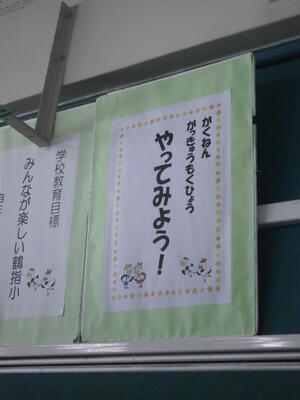 がくねん
がっきゅうもくひょう
やってみよう!
学校教育目標
みんなが楽しい鶴指小